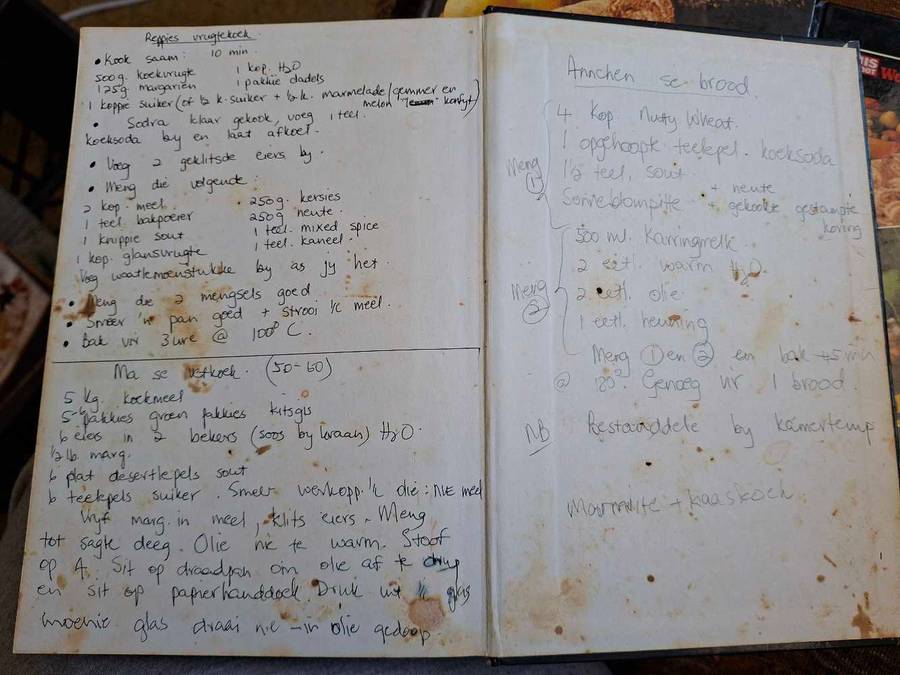 Reppies vrugtekoek
• Kook saam: 10 min.
500g. koekvrugte 1 kop. H2O
125g margarien 1 pakkie dadels
1 koppie suiker (of ½ k. suiker + ½ k. marmelade/gemmer en
melon konfyt)
• Sodra klaar gekook, voeg 1 teel.
koeksoda by en laat afkoel.
• Voeg 2 geklitsde eiers by.
• Meng die volgende:
2 kop. meel 250g. kersies
1 teel bakpoeier 250g neute.
1 knippie sout 1 teel. mixed spice
1 kop. glansvrugte 1 teel. kaneel.
Voeg waatlemoenstukke by as jy het.
• Meng die 2 mengsels goed
• Smeer 'n pan goed + strooi meel.
• Bak vir 3 ure @ 100° C.
Ma se vetkoek. (50-60)
5 kg. koekmeel
5-6 pakkies groen pakkies kitsgis
6 eiers in 2 bekers (soos by kraan) H2O.
½ lb. marg.
6 plat desertlepels sout
6 teelepels suiker. Smeer werkopp. olie: NIE meel
Vryf marg. in meel, klits eiers. Meng
tot sagte deeg. Olie nie te warm. Stoof
op 4. Sit op draadpan om olie af te drup
en sit op papierhanddoek. Druk uit glas
moenie glas draai nie – in olie gedoop.
Annchen se brood.
4 Kop Nutty Wheat.
1 opgehoopte teelepel. koeksoda
Meng 1
1½ teel. sout
Sonneblompitte + neute
+ gekookte gestampte
koring
500 ml. Karringmelk
2 eetl. warm H2O
Meng 2
2 eetl. olie
1 eetl. heuning
Meng 1 en 2 en bak 45 min
@ 180°. Genoeg vir 1 brood.
NB Bestanddele by kamertemp
Marmite + kaaskoek